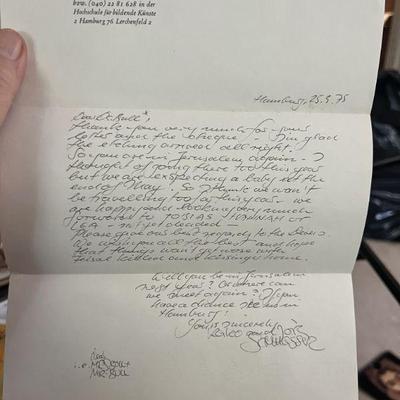 bzw. (040) 22 81 628 in der
Hochschule für bildende Künste
2 Hamburg 76 Lerchenfeld 2
Hamburg, 25.3.75
Dear Bull*,
thank you very much for your
letter and the cheque - I'm glad
the etching arrived all right.
So you are in Jerusalem again - I
thought of going there too this year
but we are expecting a baby at the
end of May. So I think we won't
be travelling too far this year - we
are happy and looking very much
forward to TOBIAS HANNAH or
LEA - not yet decided -
Please give our best regards to the
We wish you all the best and hope
that things won't get worse with
Feisal killed and Kissinger home.
Will you be in Jerusalem
next year? Or where can
we meet again? Or you
have a chance to come
Hamburg!
Yours sincerely
and Doris